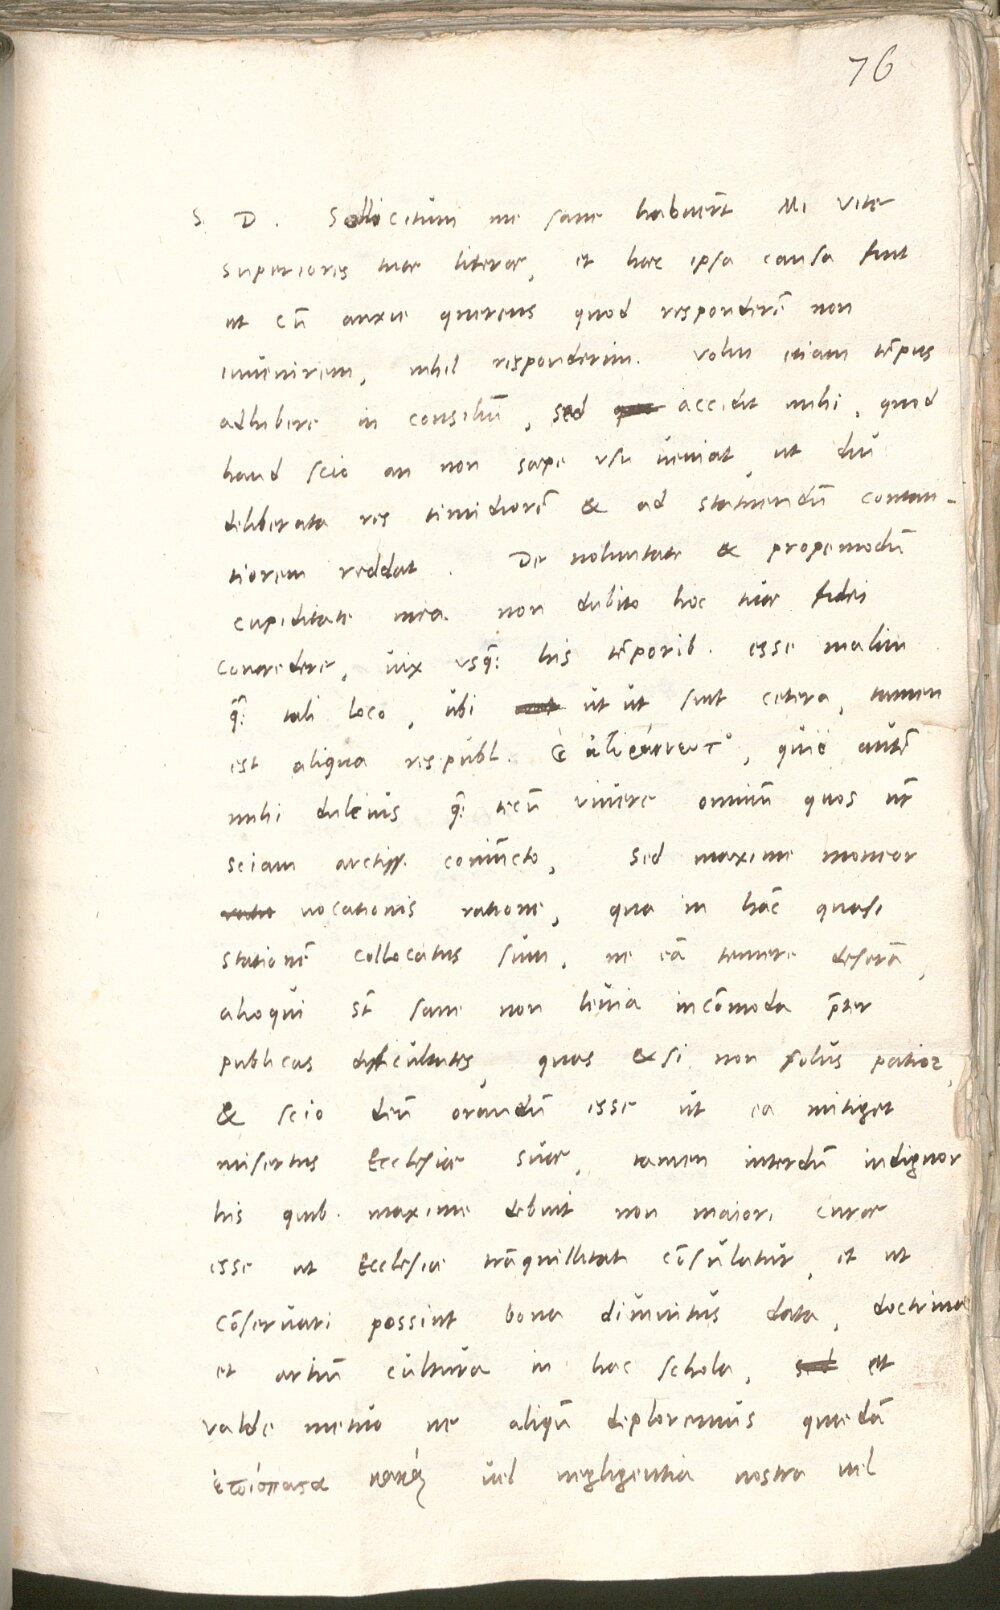 76
S. D. Sollicitum me sane habuerūt Mi Vite
superiores tuae literae, et haec ipsa causa fuit
ut cū anxie querens quod responderē non
invenirem, nihil responderim. Volui etiam tēpus
adhibere in consiliū, sed accidit mihi, quod
haud scio an non saepe usu veniat, ut diu
deliberata res timidiorē & ad statuendū contan-
tiorem reddat. De voluntate & propemodū
cupiditate mea non dubito hoc tuae fidei
concredere, vix usq: his tēporib. esse malim
q̄: tali loco, ubi ut ut sint cetera, tamen
est aliqua respubl. quid autē
mihi dulcius q̄: tecū vivere omniū quos
sciam arctiss. coniūcto, Sed maxime moveor
vocationis ratione, qua in hāc quasi
stationē collocatus sum, ne eā temere deserā,
alioqui st̄ sane non levia incōmoda p̄ter
publicas difficultates, quas & si non solus patior,
& scio deū orandū esse ut ea mitiget
misertus Ecclesiae suae, tamen interdū indignor
his quib. maxime debuit non maiori curae
esse ut Ecclesiae trāquillitati cōsulatur, et ut
cōservari possint bona divinitus data, doctrina
et artiū cultura in hac schola, et
valde metuo ne aliqū deploremus quaedā
vel negligentia nostra vel